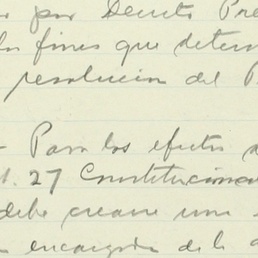 por Decreto Pre
los fines que deter
resolucion del P
Para los efectos d
t. 27 Constitucional
debe crearse una
encargada de la